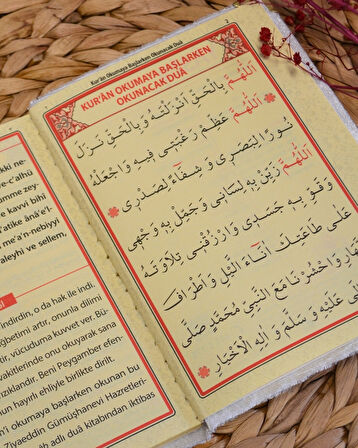 Kur'ân Okumaya Başlarken Okunacak Duâ
KUR'ÂN OKUMAYA BAŞLARKEN
OKUNACAK DUÂ
اَللّٰهُمَّ بِالْحَقِّ اَنْزَلْتَهُ وَبِالْحَقِّ نَزَلَ
اَللّٰهُمَّ عَظِّمْ رَغْبَتِى فِيهِ وَاجْعَلْهُ
نُورًا لِبَصَرِى وَ شِفَاءً لِصَدْرِى
اَللّٰهُمَّ زَيِّنْ بِهِ لِسَانِى وَجَمِّلْ بِهِ وَجْهِى
وَقَوِّ بِهِ جَسَدِى وَارْزُقْنِى تِلَاوَتَهُ
عَلٰى طَاعَتِكَ اٰنَاءَ الَّيْلِ وَاَطْرَافَ
وَاحْشُرْنَا مَعَ النَّبِىِّ مُحَمَّدٍ صَلَّى
عَلَيْهِ وَسَلَّمَ وَاٰلِهِ الْاَخْيَارِ
kki ne-
e-c'alhü
mme zey-
e kavvi bihî
'atike ânâ'el-
n me'a'n-nebiyyi
aleyhi ve sellem,
indirdin, o da hak ile indi.
ğbetimi artır, onunla dilimi
, vücuduma kuvvet ver. Bü-
akitlerinde onu okuyarak sana
rızıklandır. Beni Peygamber efen-
un hayırlı ehliyle birlikte dirilt.
n'ı okumaya başlarken okunan bu
Ziyaeddin Gümüşhanevi Hazretleri-
adlı duâ kitabından iktibas